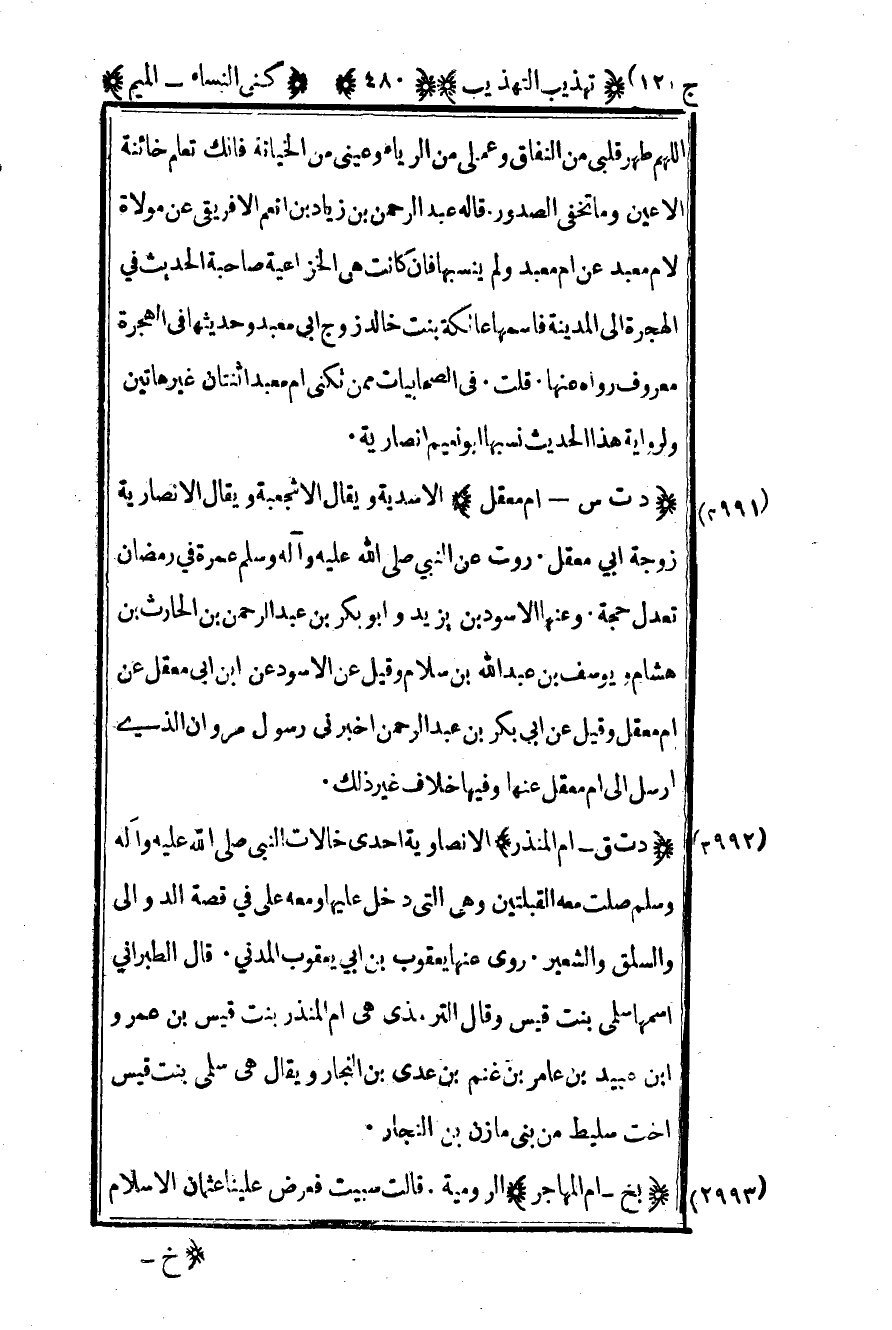 ج (١٢) ﴿ تهذيب التهذيب ﴾ ﴿ ٤٨٠ ﴾ ﴿ كنى النساء – الميم ﴾
اللهم طهر قلبى من النفاق وعملى من الرياء وعينى من الخيانة فانك تعلم خائنة
الاعين وما تخفى الصدور . قاله عبد الرحمن بن زياد بن انعم الافريقى عن مولاة
لام معبد عن ام معبد ولم ينسبها فان كانت هى الخزاعية صاحبة الحديث في
الهجرة الى المدينة فاسمها عاتكة بنت خالد زوج ابي معبد وحديثها فى الهجرة
معروف رواه عنها . قلت . فى الصحابيات ممن تكنى ام معبد اثنتان غير هاتين
ولرواية هذا الحديث نسبها ابو نعيم انصارية .
(٢٩٩١) ﴿ د ت س — ام معقل ﴾ الاسدية ويقال الاشجعية ويقال الانصارية
زوجة ابي معقل . روت عن النبي صلى الله عليه وآله وسلم عمرة في رمضان
تعدل حجة . وعنها الاسود بن يزيد و ابو بكر بن عبد الرحمن بن الحارث بن
هشام و يوسف بن عبد الله بن سلام وقيل عن الاسود عن ابن ابى معقل عن
ام معقل وقيل عن ابي بكر بن عبد الرحمن اخبرنى رسول مروان الذي
ارسل الى ام معقل عنها وفيها خلاف غير ذلك .
(٢٩٩٢) ﴿ د ت ق – ام المنذر ﴾ الانصارية احدى خالات النبي صلى الله عليه وآله
وسلم صلت معه القبلتين وهى التى دخل عليها ومعه على في قصة الدوالى
والسلق والشعير . روى عنها يعقوب بن ابي يعقوب المدني . قال الطبراني
اسمها سلمى بنت قيس وقال الترمذى هى ام المنذر بنت قيس بن عمرو
ابن عبيد بن عامر بن غنم بن عدى بن النجار و يقال هى سلمى بنت قيس
اخت سليط من بنى مازن بن النجار .
(٢٩٩٣) ﴿ بخ – ام المهاجر ﴾ الرومية . قالت سبيت فعرض علينا عثمان الاسلام
﴿ خ –